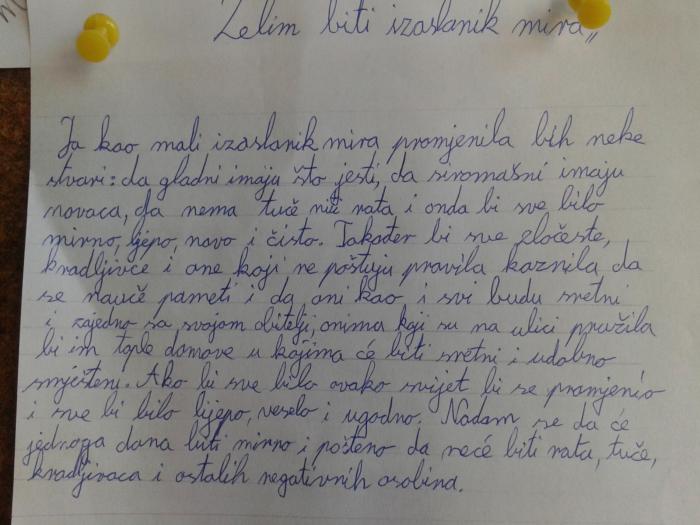 Želim biti izaslanik mira"
Ja kao mali izaslanik mira promjenila bih neke
stvari: da gladni imaju što jesti, da siromašni imaju
novaca, da nema tuče niti rata i onda bi sve bilo
mirno, ljepo, novo i čisto. Također bi sve zločeste,
kradljivce i one koji ne poštuju pravila kaznila da
se nauče pameti i da oni kao i svi budu sretni
i zajedno sa svojom obitelji, onima koji su na ulici pružila
bi im tople domove u kojima će biti sretni i udobno
smješteni. Ako bi sve bilo ovako svijet bi se promjenio
i sve bi bilo lijepo, veselo i ugodno. Nadam se da će
jednoga dana biti mirno i pošteno da neće biti rata, tuče,
kradljivaca i ostalih negativnih osobina.